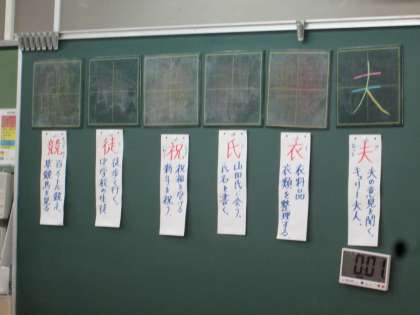 夫
夫
夫の意見を聞く。
キュリー夫人。
衣
衣料品
衣類を整理する
氏
山田氏に会う。
氏名を書く。
祝
祝福を受ける
新年を祝う。
徒
徒歩で行く。
中学校の生徒
競
百メートル競走
草競馬を見る
001